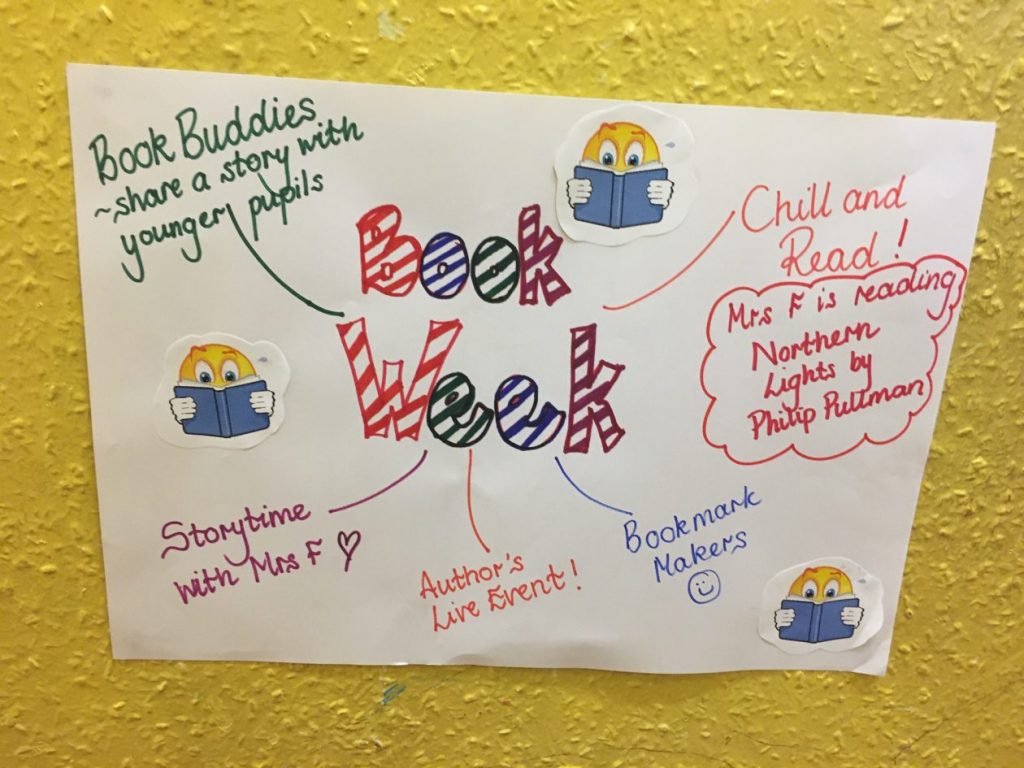 Book Buddies
~share a story with
younger pupils
Book
Week
Chill and
Read!
Mrs F is reading
Northern
Lights by
Philip Pullman
Storytime
with Mrs F
Author's
Live Event!
Bookmark
Makers